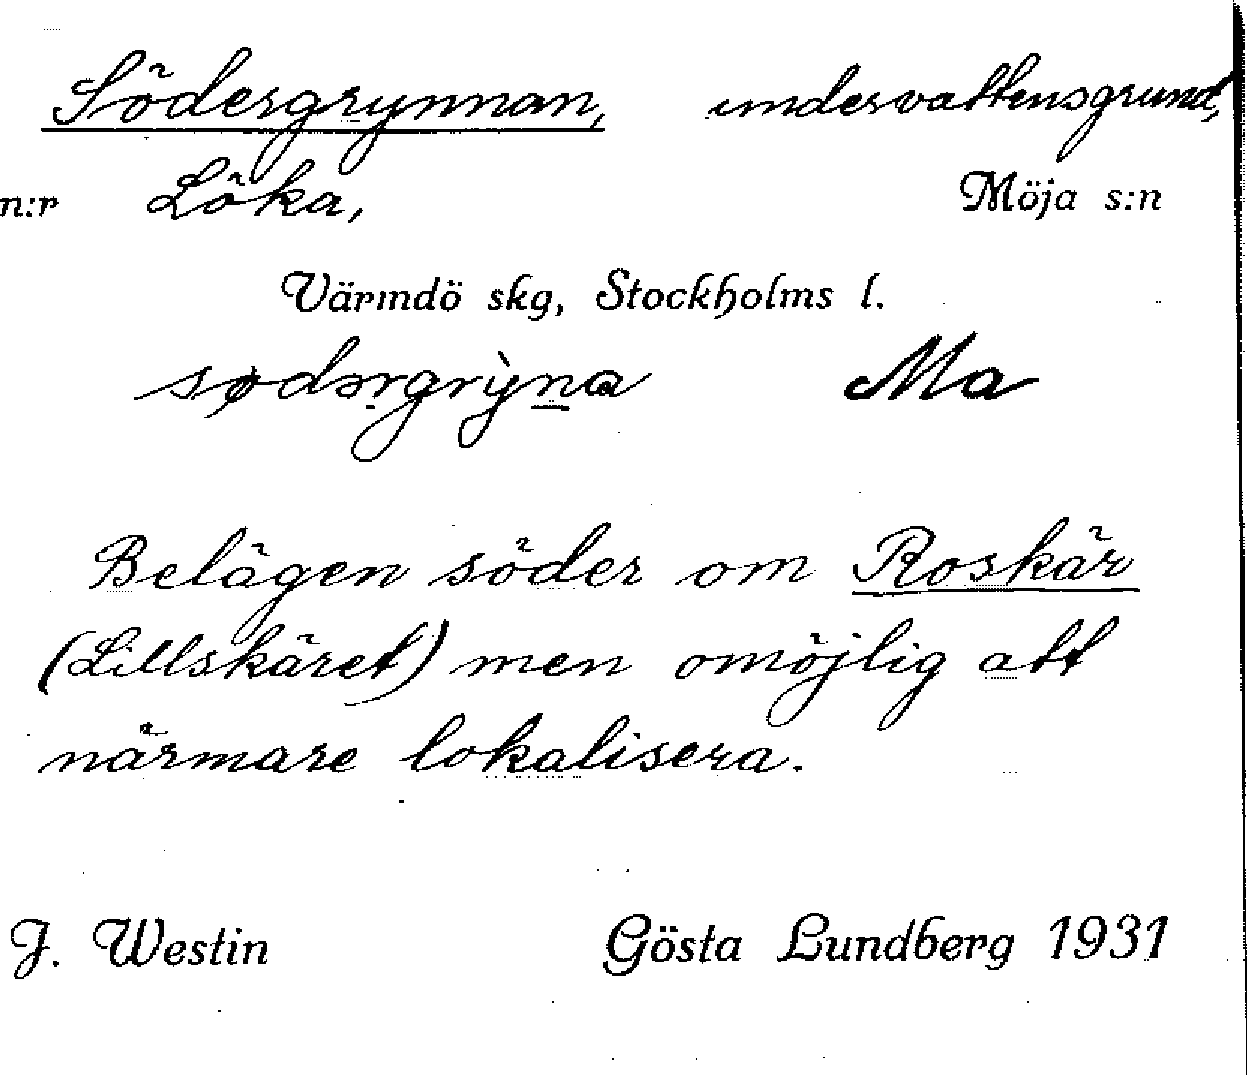 Södergrynnan, undervattensgrund,
n:r Löka, Möja s:n
Värmdö skg, Stockholms l.
sødərgrỳna Ma
Belägen söder om Roskär
(Lillskäret) men omöjlig att
närmare lokalisera.
J. Westin Gösta Lundberg 1931